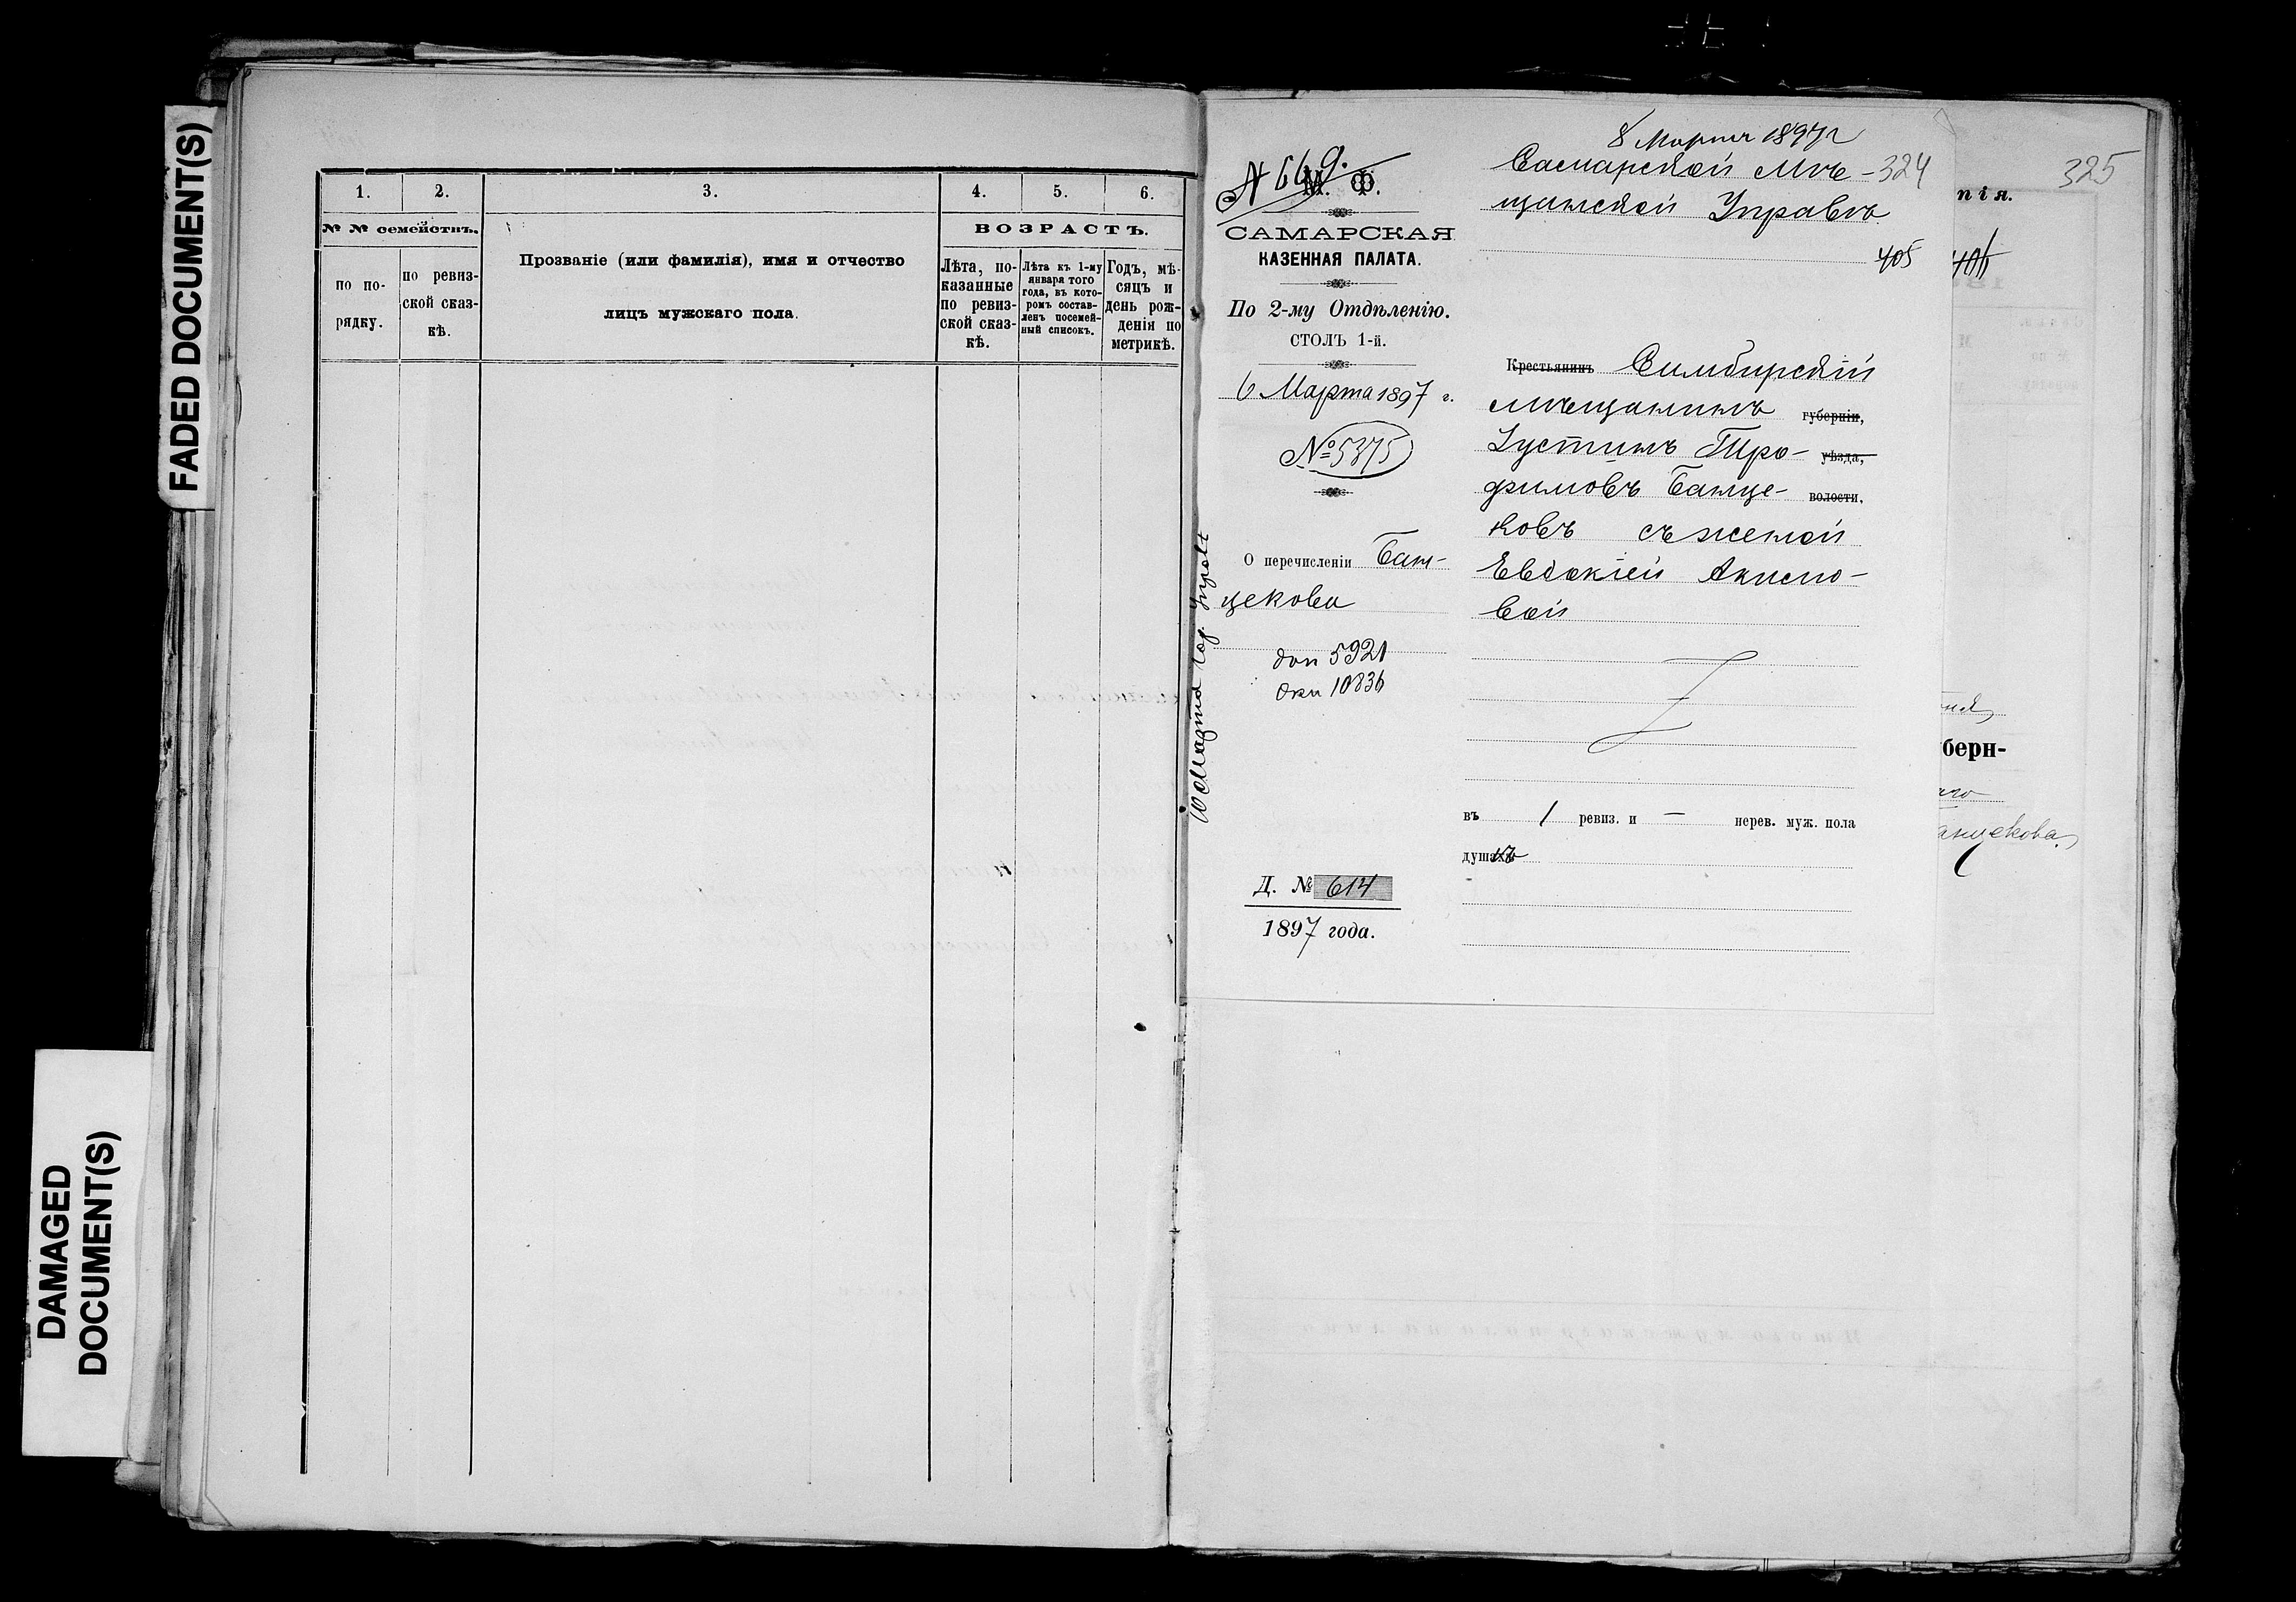 FADED DOCUMENT(S)
DAMAGED
DOCUMENT(S)
1. 2. 3. 4. 5. 6.
№ № семействъ.
ВОЗРАСТЪ.
по по-
рядку.
по ревиз-
ской сказ-
кѣ.
Прозваніе (или фамилія), имя и отчество
лицъ мужскаго пола.
Лѣта, по-
казанные
по ревиз-
ской сказ-
кѣ.
Лѣта къ 1-му
января того
года, въ кото-
ромъ состав-
ленъ посемей-
ный списокъ.
Годъ, мѣ-
сяцъ и
день рож-
денія по
метрикѣ.
№ 669.
М. Ф.
САМАРСКАЯ
КАЗЕННАЯ ПАЛАТА.
По 2-му Отдѣленію.
СТОЛЪ 1-й.
6 Марта 1897 г.
№ 5375
О перечисленіи Бан-
цекова
доп 5921
оки 10836
Д. № 614
1897 года.
8 Марта 1897 г
Самарской Мѣ-
щанской Управѣ
324
405
Крестьянинъ Симбирскій
мѣщанинъ губерніи,
Іустинъ Тро- уѣзда,
фимовъ Банце- волости,
ковъ съ женой
Евдокіей Акимо-
вой
въ 1 ревиз. и — нерев. муж. пола
душахъ
325
нія.
406
берн-
анцекова